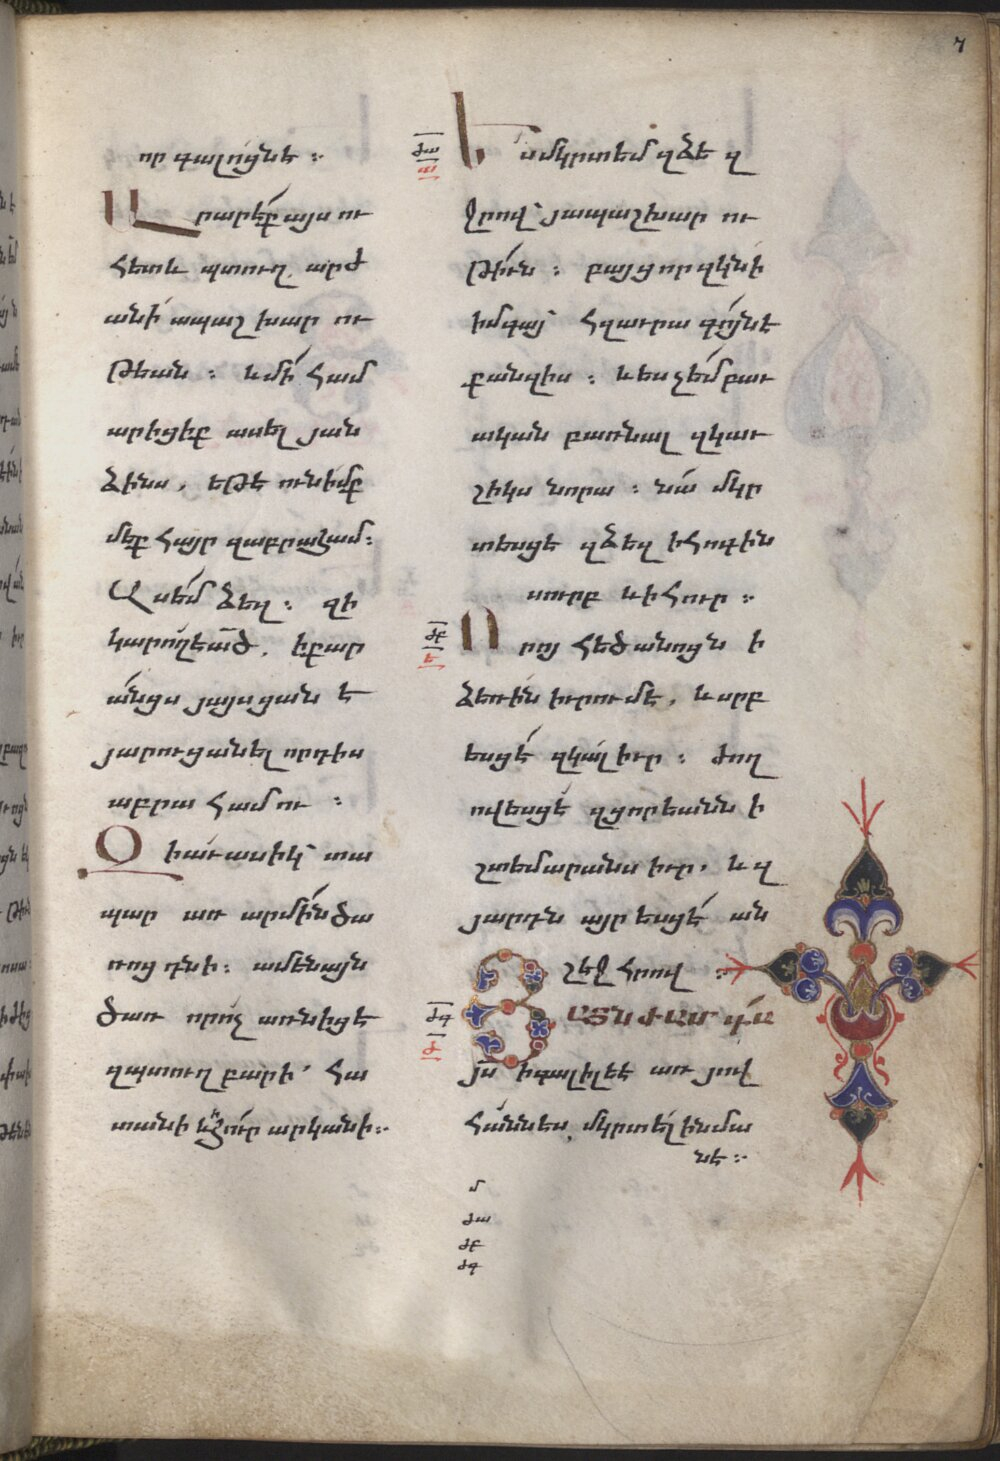 7
որ գալոցնէ ։
Արարէք այս ու
հետև պտուղ արժ
անի ապաշխար ու
թեան ։ և մի համ
արիցիք ասել յան
ձինս, եթէ ունիմք
մեք հայր զաբրահամ։
Ասեմ ձեզ ։ զի
կարող է ած, ի քար
անցս յայսցան է
յարուցանել որդիս
աբրահամու ։
Զի աւասիկ տա
պար առ արմին ծա
ռոց դնի ։ ամենայն
ծառ որ ոչ առնիցէ
զպտուղ բարի՝ հա
տանի և ի հուր արկանի։
ժա
ա
Ես մկրտեմ զձեզ
ջրով յապաշխար ու
թիւն ։ բայց որ զկնի
իմ գայ հզաւրագոյն է
քան զիս ։ և ես չեմ բաւ
ական բառնալ զկաւ
շիկս նորա ։ նա մկր
տեսցէ զձեզ ի հոգին
սուրբ և ի հուր ։
ժբ
ե
Որոյ հեծանոցն ի
ձեռին իւրում է, և սրբ
եսցէ զկալ իւր ։ ժող
ովեսցէ զցորեանն ի
շտեմարանս իւր, և զ
յարդն այրեսցէ ան
շէջ հրով ։
ժգ
ժ
ՅԱՅՆԺԱՄ գա
յս ի գալիլեէ առ յով
հաննէս մկրտել ի նմա
նէ ։
մ
ժա
ժբ
ժգ